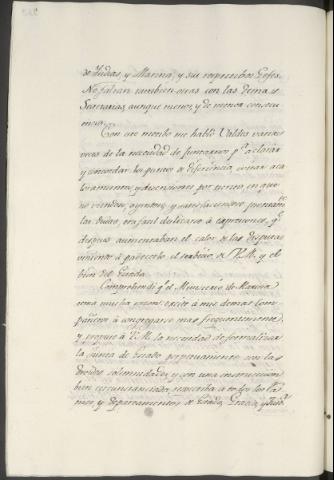 de Yndias, y Marina, y sus respectivos Gefes.
No faltan tambien otras con las demas
Secretarias, aunque menos, y de menor consecu
encia.
Con este motivo me habló Valdés varias
veces de la necesidad de juntarnos p.ª aclarar
y concordar los puntos de diferencia, evitar aca
loramientos, y discusiones por escrito, en que
no viendose, oyendose, y satisfaciendose prontam.te
las dudas, era facil dislocarse, ó equivocarse, y q.e
despues aumentaban el calor de las disputas
viniendo á padecerlo el servicio de V.M. y el
bien del Estado.
Comprehendí q.e el Ministro de Marina
tenia mucha razon: excité á mis demas Com
pañeros á congregarse mas frequentemente,
y propuse á V.M. la necesidad de formalizar
la Junta de Estado perpetuamente con las
devidas solemnidades, y con una instruccion
bien circunstanciada, respectiva á todos los Ra
mos y departamentos de Estado, Gracia, y Just.ª